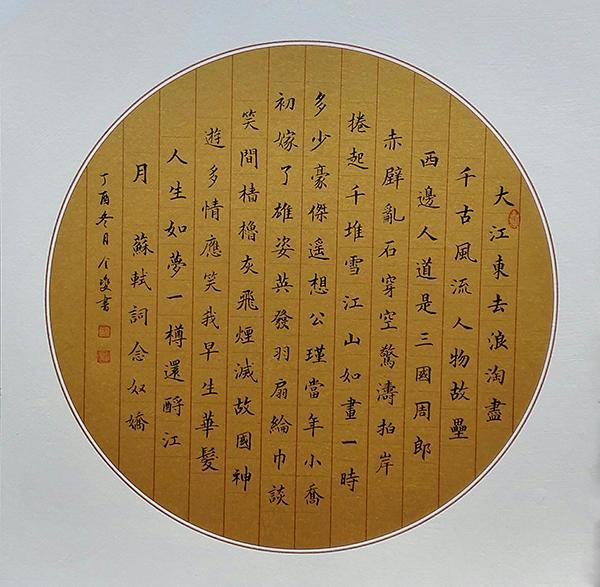 大江東去浪淘盡
千古風流人物故壘
西邊人道是三國周郎
赤壁亂石穿空驚濤拍岸
捲起千堆雪江山如畫一時
多少豪傑遥想公瑾當年小喬
初嫁了雄姿英發羽扇綸巾談
笑間檣櫓灰飛煙滅故國神
遊多情應笑我早生華髮
人生如夢一樽還酹江
月 蘇軾詞念奴嬌
丁酉冬月
書